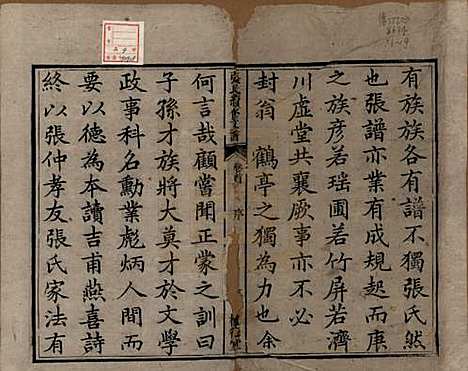 有族族各有譜不獨張氏然
也張譜亦業有成規起而庚
之族彦若瑶圃若竹屏若濟
川虛堂共襄厥事亦不必
封翁鶴亭之獨為力也余
卷首 序
何言哉顧嘗聞正蒙之訓曰
子孫才族將大莫才於文學
政事科名勳業彪炳人間而
要以德為本讀吉甫燕喜詩
終以張仲孝友張氏家法有